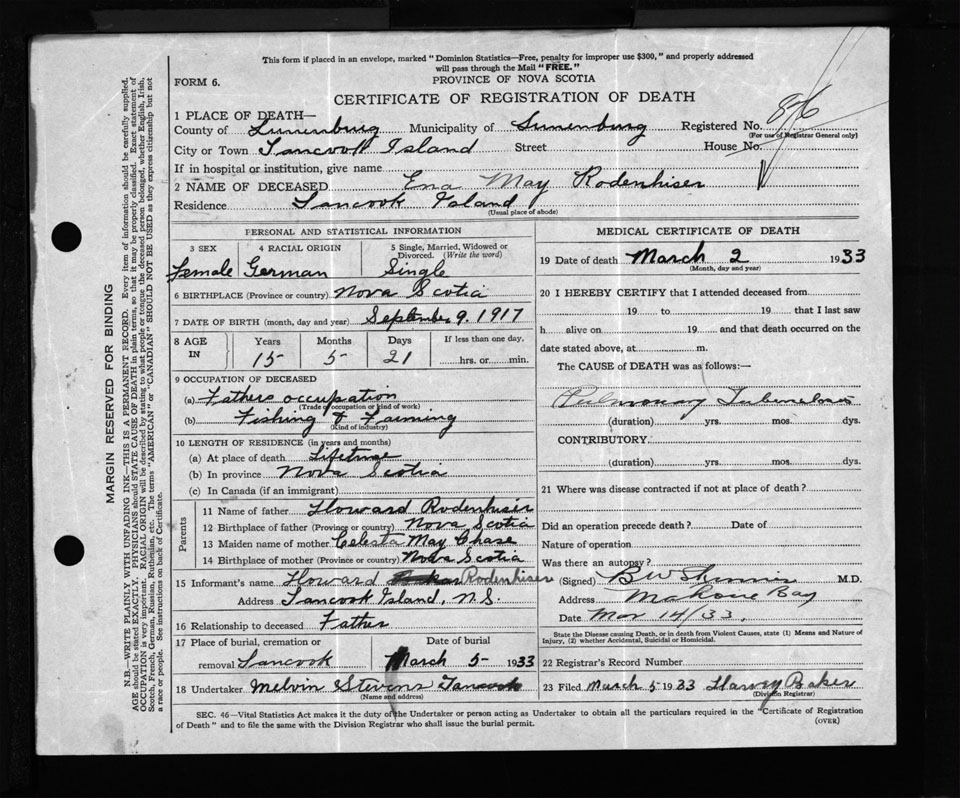 This form if placed in an envelope, marked "Dominion Statistics—Free, penalty for improper use $300," and properly addressed
will pass through the Mail "FREE."
FORM 6.
PROVINCE OF NOVA SCOTIA
CERTIFICATE OF REGISTRATION OF DEATH
1 PLACE OF DEATH—
County of Lunenburg Municipality of Lunenburg Registered No. 876
(For use of Registrar General only)
City or Town Tancook Island Street House No.
If in hospital or institution, give name
2 NAME OF DECEASED Ena May Rodenhiser
Residence Tancook Island
(Usual place of abode)
PERSONAL AND STATISTICAL INFORMATION
3 SEX 4 RACIAL ORIGIN 5 Single, Married, Widowed or Divorced. (Write the word)
Female German Single
6 BIRTHPLACE (Province or country) Nova Scotia
7 DATE OF BIRTH (month, day and year) September 9. 1917
8 AGE IN Years Months Days If less than one day,
15 5 21 hrs. or min.
9 OCCUPATION OF DECEASED
(a) Fathers occupation
(Trade or occupation or kind of work)
(b) Fishing & Farming
(Kind of industry)
10 LENGTH OF RESIDENCE (in years and months)
(a) At place of death Lifetime
(b) In province Nova Scotia
(c) In Canada (if an immigrant)
Parents
11 Name of father Howard Rodenhiser
12 Birthplace of father (Province or country) Nova Scotia
13 Maiden name of mother Celesta May Chase
14 Birthplace of mother (Province or country) Nova Scotia
15 Informant's name Howard Rodenhiser
Address Tancook Island, N.S.
16 Relationship to deceased Father
17 Place of burial, cremation or removal Tancook Date of burial March 5- 1933
18 Undertaker Melvin Stevens Tancook
(Name and address)
MEDICAL CERTIFICATE OF DEATH
19 Date of death March 2 1933
(Month, day and year)
20 I HEREBY CERTIFY that I attended deceased from
19 to 19 that I last saw
h alive on 19 and that death occurred on
date stated above, at m.
The CAUSE of DEATH was as follows:—
Pulmonary Tuberculosis
(duration) yrs. mos. dys.
CONTRIBUTORY.
(duration) yrs. mos. dys.
21 Where was disease contracted if not at place of death?
Did an operation precede death? Date of
Nature of operation
Was there an autopsy?
(Signed) B W Skinner M.D.
Address Mahone Bay
Date Mar 14/33.
State the Disease causing Death, or in death from Violent Causes, state (1) Means and Nature of
Injury, (2) whether Accidental, Suicidal or Homicidal.
22 Registrar's Record Number
23 Filed March 5 1933 Harvey Baker
(Division Registrar)
SEC. 46—Vital Statistics Act makes it the duty of the Undertaker or person acting as Undertaker to obtain all the particulars required in the "Certificate of Registration
of Death" and to file the same with the Division Registrar who shall issue the burial permit.
(OVER)
MARGIN RESERVED FOR BINDING
N.B.—WRITE PLAINLY WITH UNFADING INK—THIS IS A PERMANENT RECORD. Every item of information should be carefully supplied.
AGE should be stated EXACTLY. PHYSICIANS should STATE CAUSE OF DEATH in plain terms, so that it may be properly classified. Exact statement of
OCCUPATION is very important. RACIAL ORIGIN will be described by stating to what people or tongue the deceased person belonged, whether English, Irish,
Scotch, French, German, Russian, Ruthenian, etc. The terms "AMERICAN" or "CANADIAN" SHOULD NOT BE USED as they express citizenship but not
a race or people. See instructions on back of Certificate.